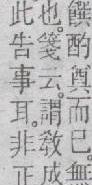 饌酌奠而已無
也箋云謂敎成
此告事耳非正